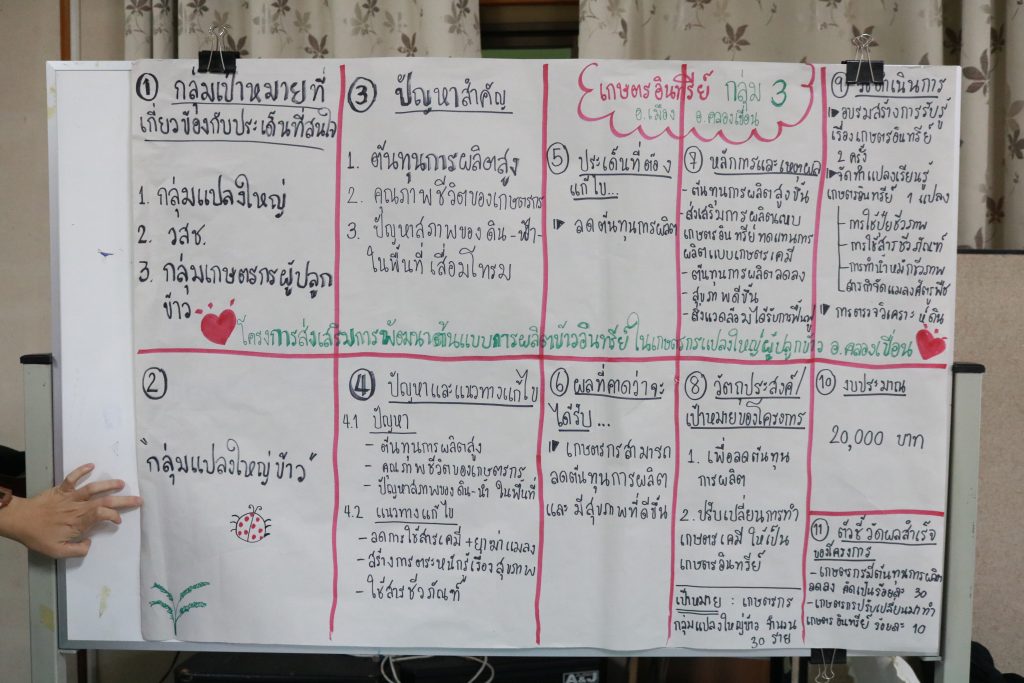 ① กลุ่มเป้าหมายที่
เกี่ยวข้องกับประเด็นที่สนใจ
1. กลุ่มแปลงใหญ่
2. วสช.
3. กลุ่มเกษตรกรผู้ปลูก
ข้าว
③ ปัญหาสำคัญ
1. ต้นทุนการผลิตสูง
2. คุณภาพชีวิตของเกษตรกร
3. ปัญหาสภาพของ ดิน-น้ำ-
ในพื้นที่ เสื่อมโทรม
เกษตรอินทรีย์ กลุ่ม 3
อ.เมือง อ.คลองเขื่อน
⑤ ประเด็นที่ต้อง
แก้ไข...
ลดต้นทุนการผลิต
⑦ หลักการและเหตุผล
- ต้นทุนการผลิตสูงขึ้น
- ส่งเสริมการผลิตแบบ
เกษตรอินทรีย์ทดแทนการ
ผลิตแบบเกษตรเคมี
- ต้นทุนการผลิตลดลง
- สุขภาพดีขึ้น
- สิ่งแวดล้อมได้รับการฟื้นฟู
⑨ วิธีดำเนินการ
อบรมสร้างการรับรู้
เรื่องเกษตรอินทรีย์
2 ครั้ง
จัดทำแปลงเรียนรู้
เกษตรอินทรีย์ 1 แปลง
การใช้ปุ๋ยชีวภาพ
การใช้สารชีวภัณฑ์
การทำน้ำหมักชีวภาพ
สารกำจัดแมลงศัตรูพืช
การตรวจวิเคราะห์ดิน
โครงการส่งเสริมการพัฒนาต้นแบบการผลิตข้าวอินทรีย์ ในเกษตรกรแปลงใหญ่ผู้ปลูกข้าว อ.คลองเขื่อน
②
"กลุ่มแปลงใหญ่ข้าว"
④ ปัญหาและแนวทางแก้ไข
4.1 ปัญหา
- ต้นทุนการผลิตสูง
- คุณภาพชีวิตของเกษตรกร
- ปัญหาสภาพของ ดิน-น้ำ ในพื้นที่
4.2 แนวทางแก้ไข
- ลดการใช้สารเคมี + ยาฆ่าแมลง
- สร้างการตระหนักรู้เรื่องสุขภาพ
- ใช้สารชีวภัณฑ์
⑥ ผลที่คาดว่าจะ
ได้รับ ...
เกษตรกรสามารถ
ลดต้นทุนการผลิต
และ มีสุขภาพที่ดีขึ้น
⑧ วัตถุประสงค์/
เป้าหมายของโครงการ
1. เพื่อลดต้นทุน
การผลิต
2. ปรับเปลี่ยนการทำ
เกษตรเคมี ให้เป็น
เกษตรอินทรีย์
เป้าหมาย : เกษตรกร
กลุ่มแปลงใหญ่ข้าว จำนวน
30 ราย
⑩ งบประมาณ
20,000 บาท
⑪ ตัวชี้วัดผลสำเร็จ
ของโครงการ
- เกษตรกรมีต้นทุนการผลิต
ลดลง คิดเป็นร้อยละ 30
- เกษตรกรปรับเปลี่ยนมาทำ
เกษตรอินทรีย์ ร้อยละ 10
A&J